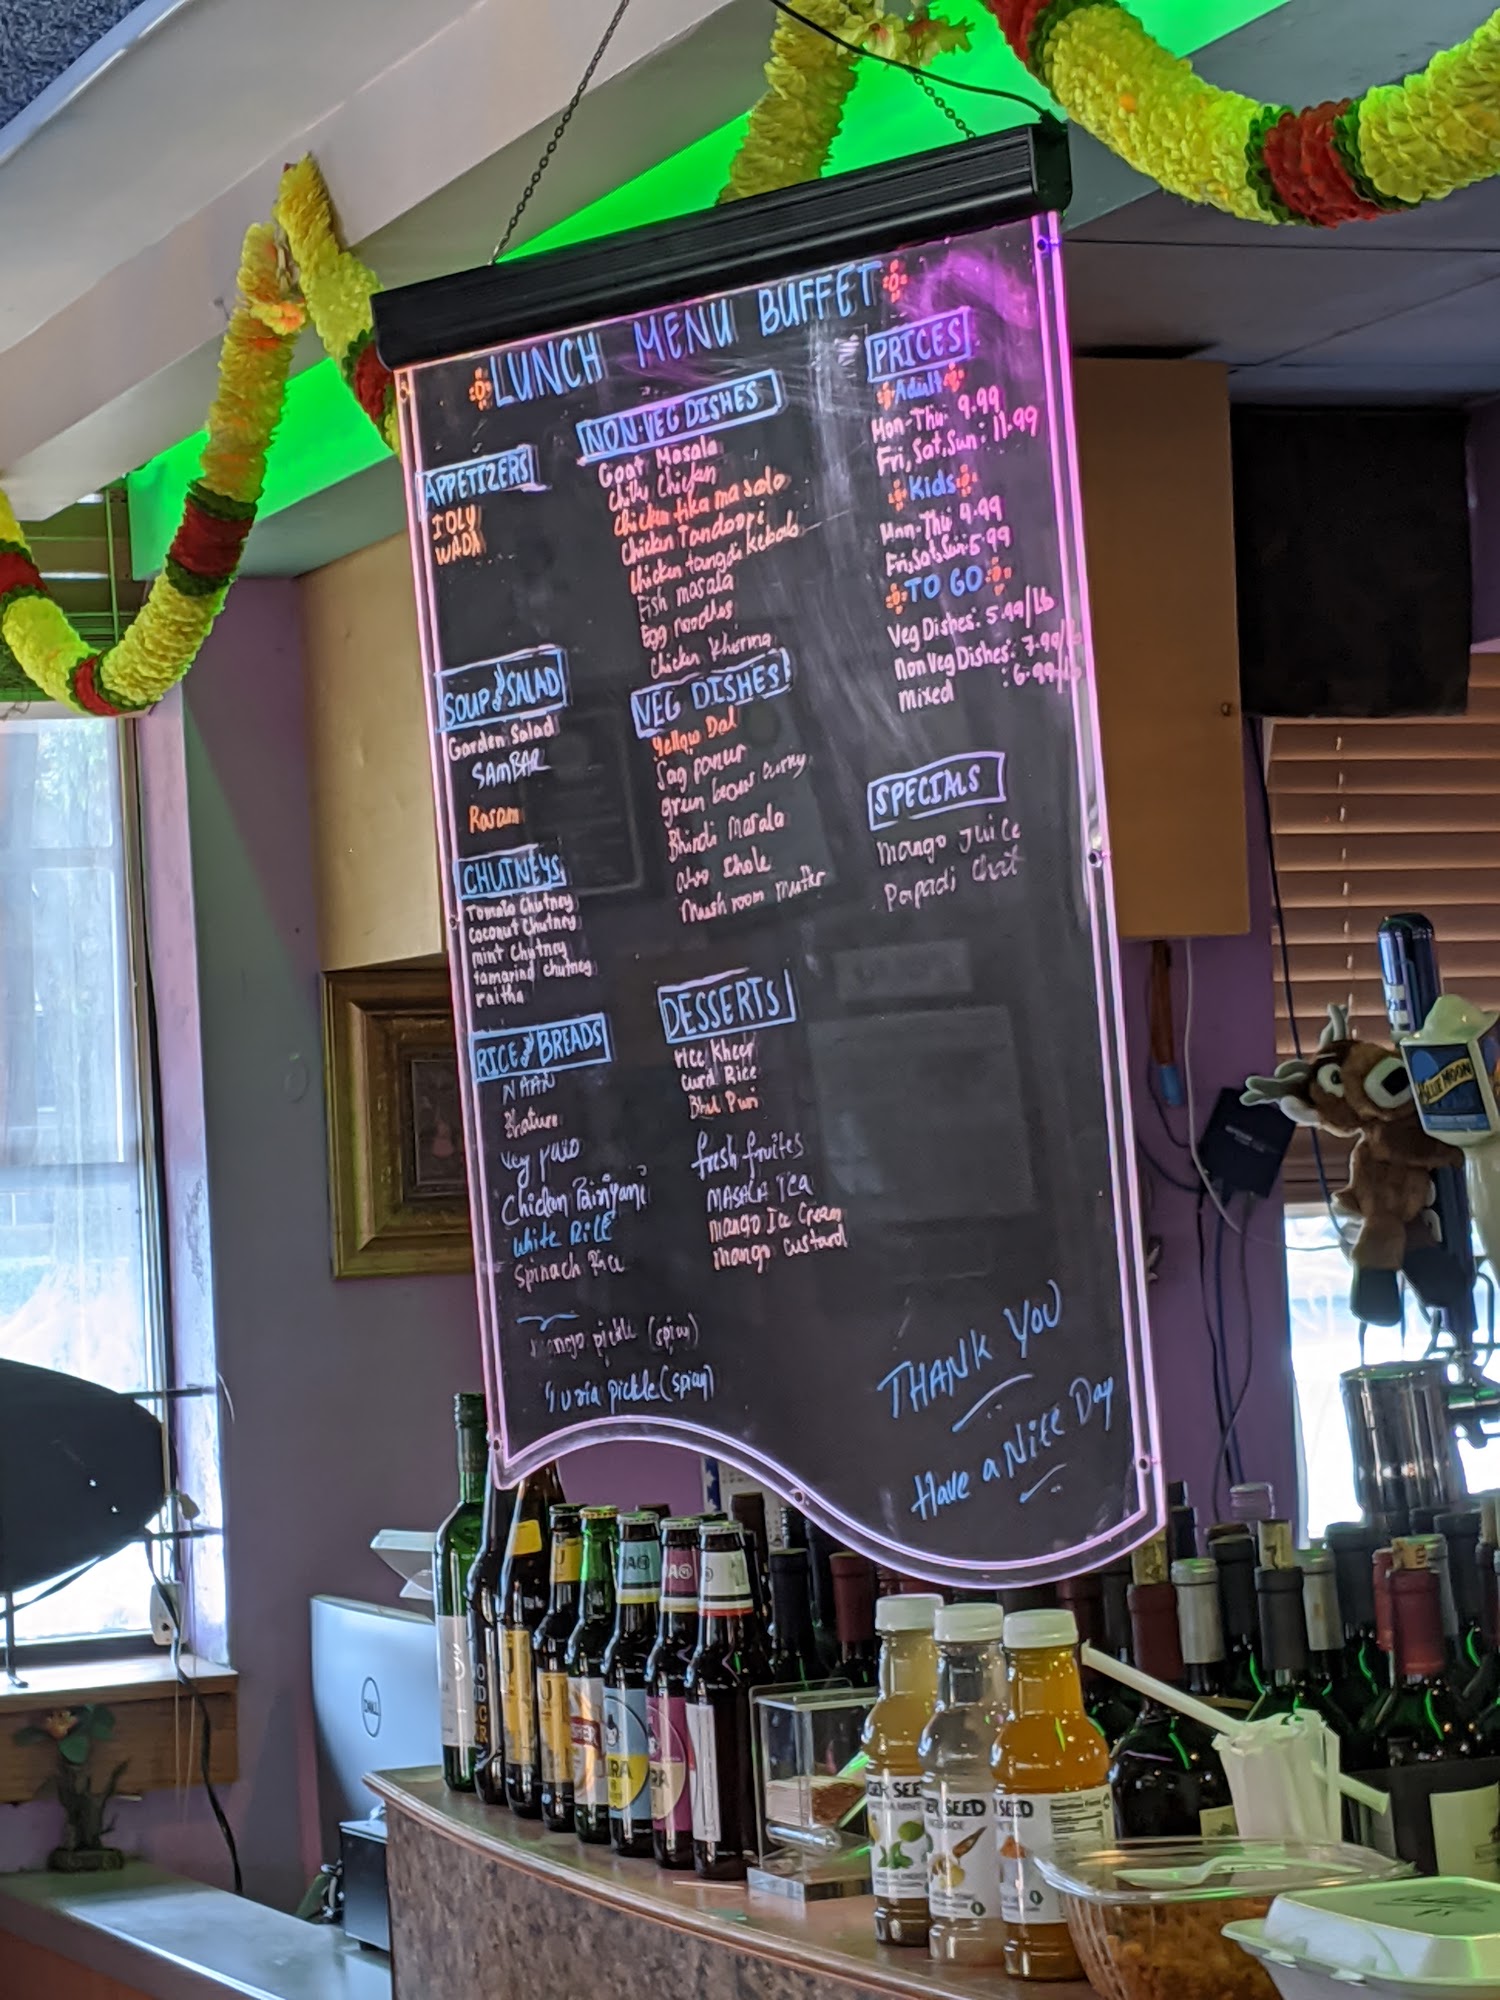 LUNCH MENU BUFFET
APPETIZERS
IDLY
WADA
SOUP & SALAD
Garden Salad
SAMBAR
Rasam
CHUTNEYS
Tomato Chutney
coconut Chutney
mint Chutney
tamarind chutney
raitha
RICE & BREADS
NAAN
Bhature
Veg Pulao
Chicken Biriyani
White RICE
Spinach Rice
mango pickle (spicy)
pickle (spicy)
NON-VEG DISHES
Goat Masala
Chilli Chicken
Chicken tika masala
Chicken Tandoori
Chicken tangdi Kebab
Fish masala
Egg noodles
Chicken Khorma
VEG DISHES
Yellow Dal
Sag paneer
green beans curry
Bhindi Masala
aloo chole
Mushroom mutter
DESSERTS
rice Kheer
Curd Rice
Bhel Puri
fresh fruites
MASALA Tea
Mango Ice Cream
mango custard
PRICES
Adult
Mon-Thu 9.99
Fri, Sat, Sun: 11.99
Kids
Mon-Thu 4.99
Fri, Sat, Sun 5.99
TO GO
Veg Dishes: 5.99/lb
Non Veg Dishes: 7.99/lb
Mixed : 6.99/lb
SPECIALS
Mango Juice
Papadi Chat
THANK YOU
Have a Nice Day
BLUE MOON
DELL
GER SEE
ER SEED
SEED